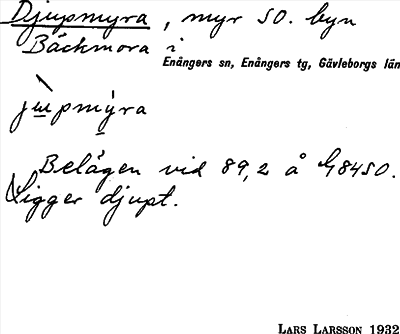 Djupmyra, myr SO. byn
Bäckmora i
Enångers sn, Enångers tg, Gävleborgs län
jupmyra
Belägen vid 89,2 å G84SO.
Ligger djupt.
LARS LARSSON 1932